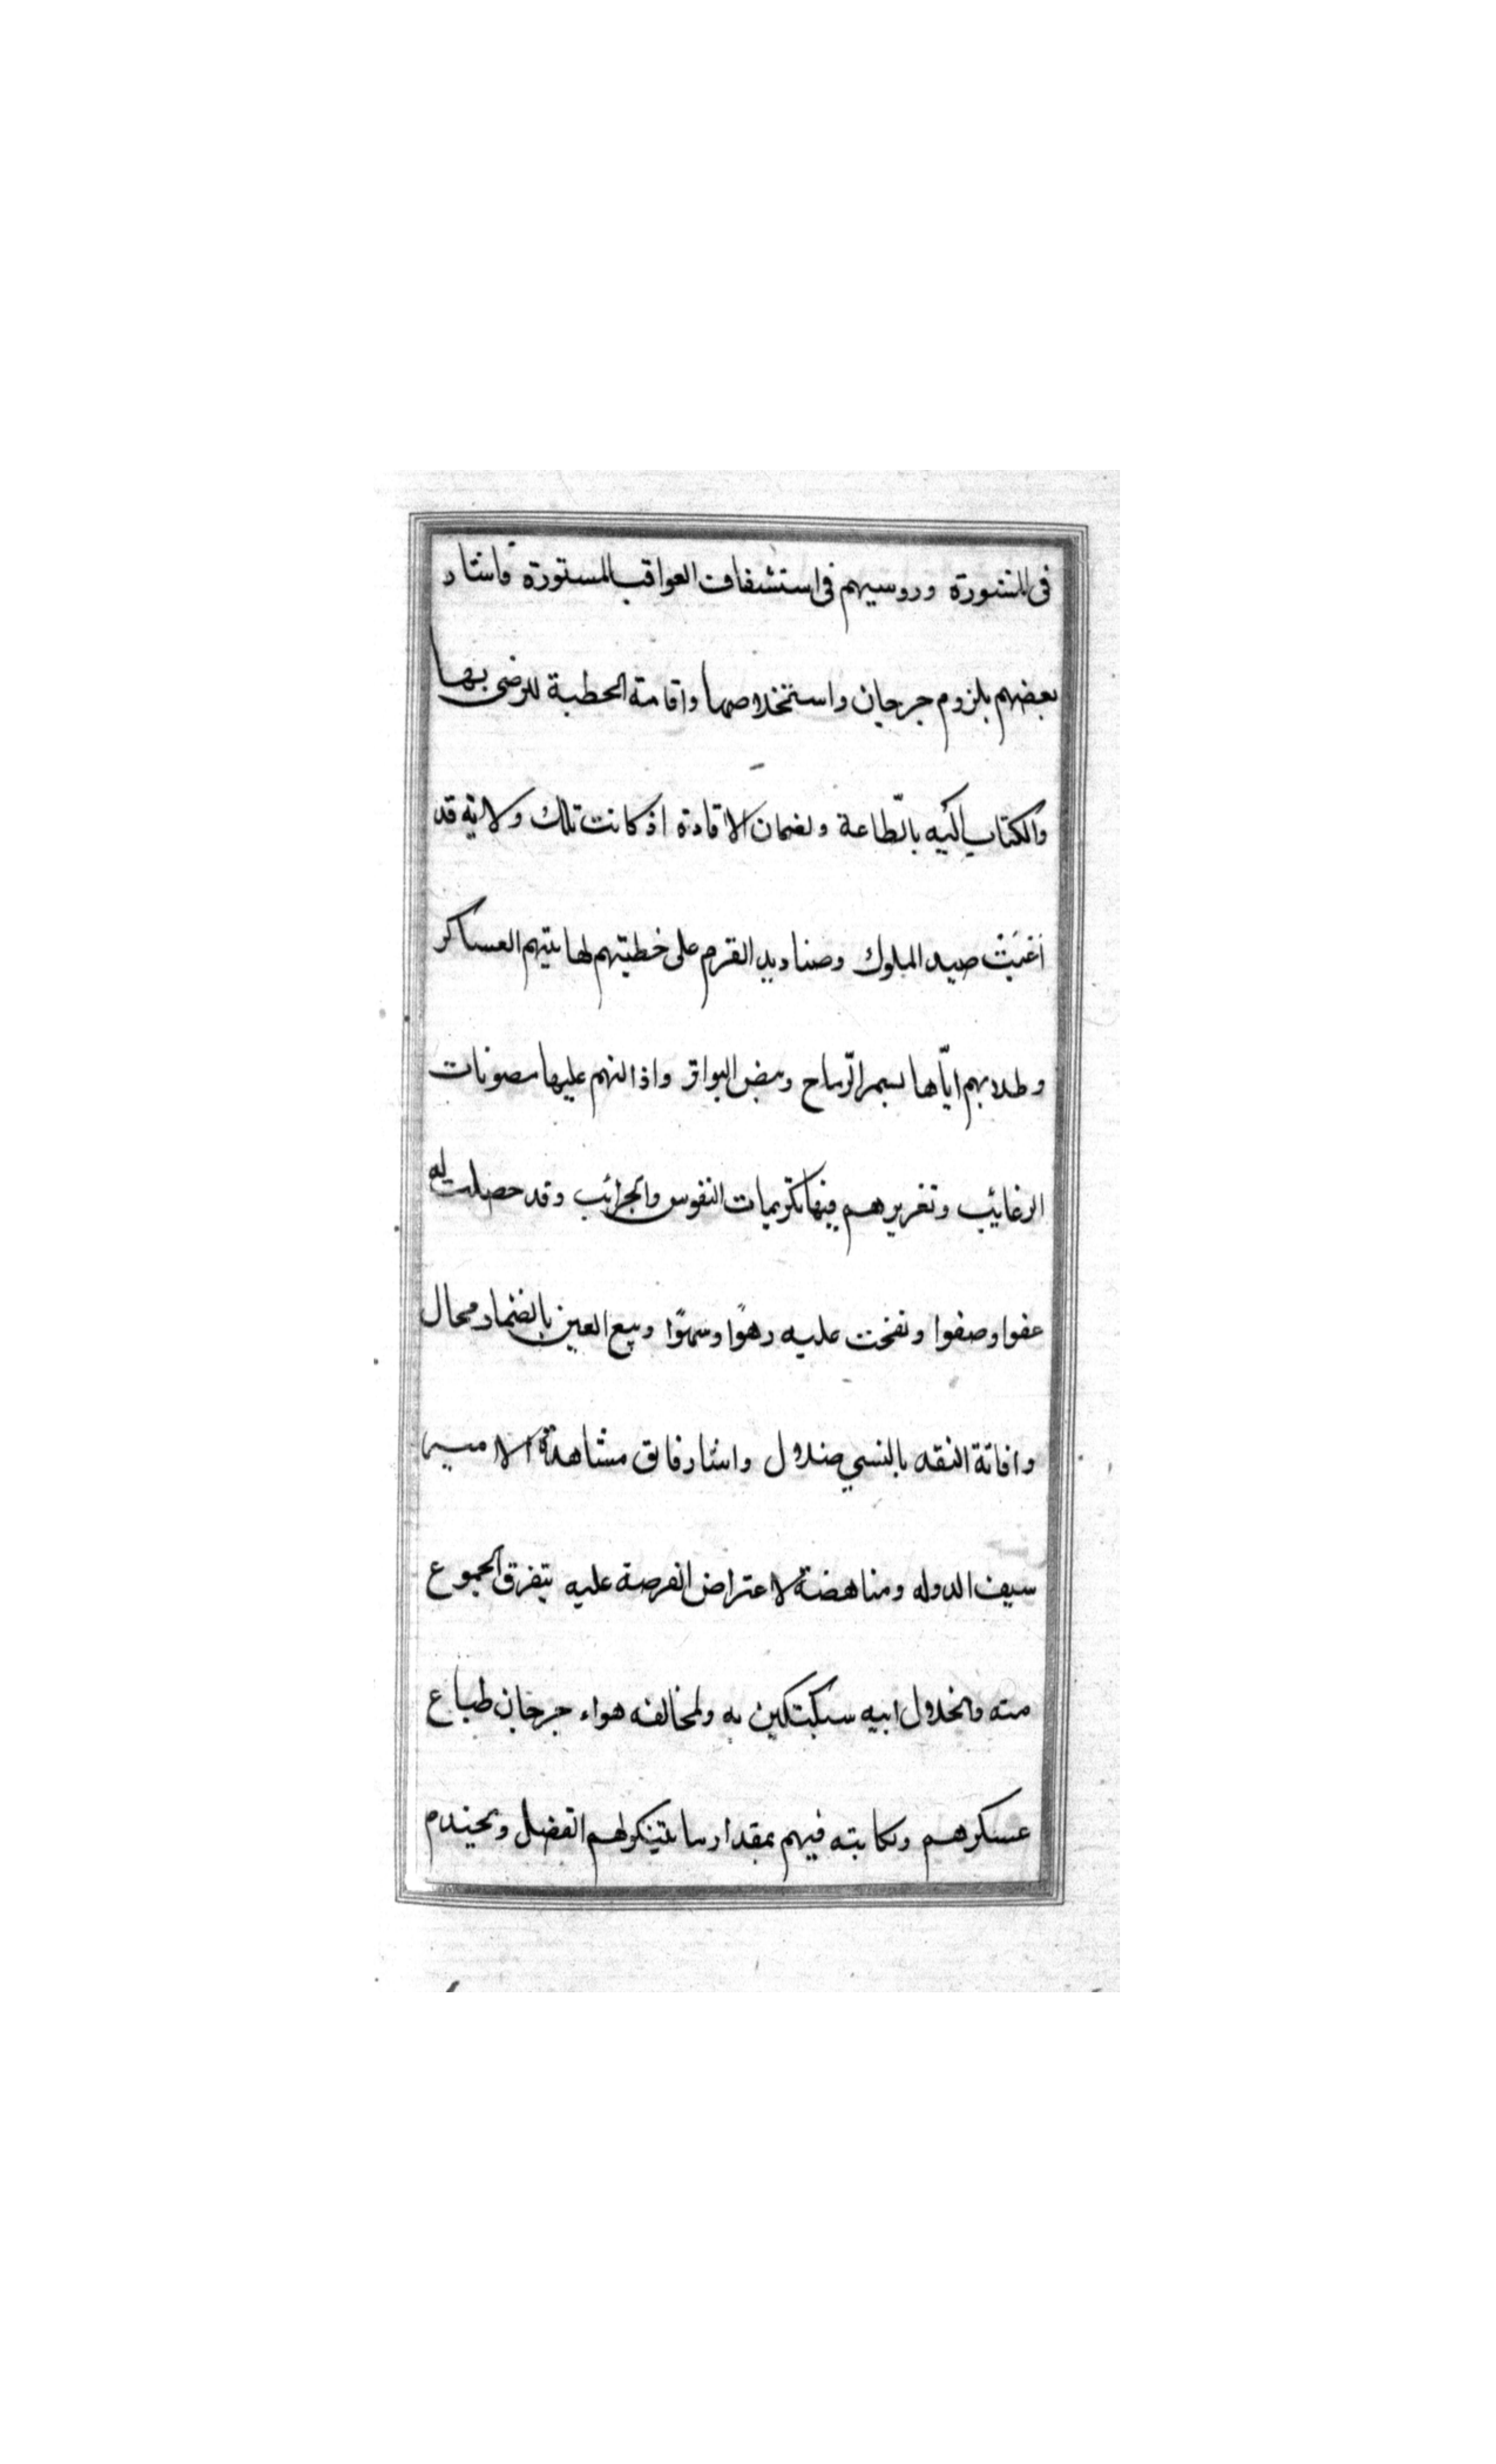 فى المشورة وروسيهم فى استشفاف العواقب المستورة فاشار
بعضهم بلزوم جرجان واستخلاصها واقامة الخطبة للرضى بها
والكتاب اليه بالطاعة وضمان الاقادة اذ كانت تلك ولاية قد
اَعْيَتْ صيد الملوك وصناديد القرم على خطبتهم لها بتيهم العساكر
وطلابهم ايّاها بسمر الرّماح وبيض البواتر واذالتهم عليها مصونات
الرغايب وتغريرهم فيها بكريمات النفوس والحرائب وقد حصلت له
عفوا وصفوا ونفخت عليه رهوًا وسهوًا وبيع العين بالضمار محال
وافاتة النقد بالنسي ضلال واشار فايق مشاهدة الامير
سيف الدوله ومناهضة لاعتراض الفرصة عليه بتفرق الجموع
منه وانخذال ابيه سبكتكين به ولمخالفه هواء جرجان طباع
عسكرهم ونكايته فيهم بمقدار ما يتنكر لهم الفصل ويحيندم